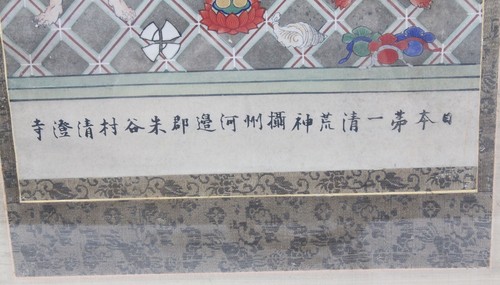 日本第一清荒神攝州河邉郡朱谷村清澄寺